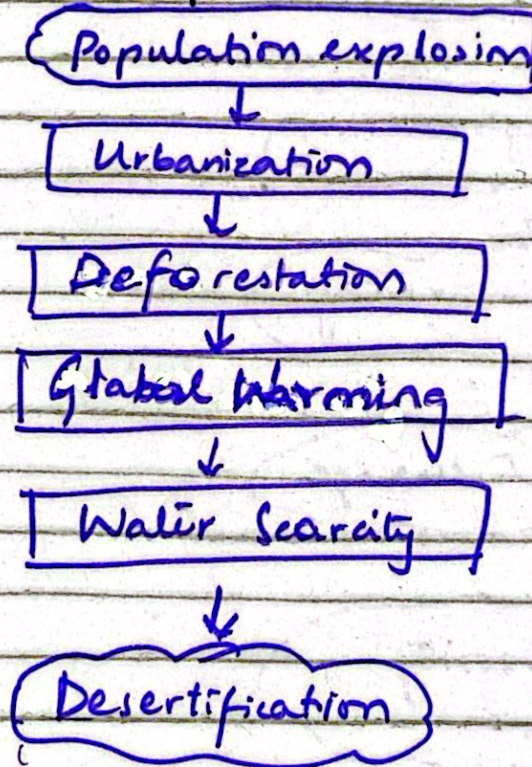 Population explosion
Urbanization
Deforestation
Global Warming
Water Scarcity
Desertification